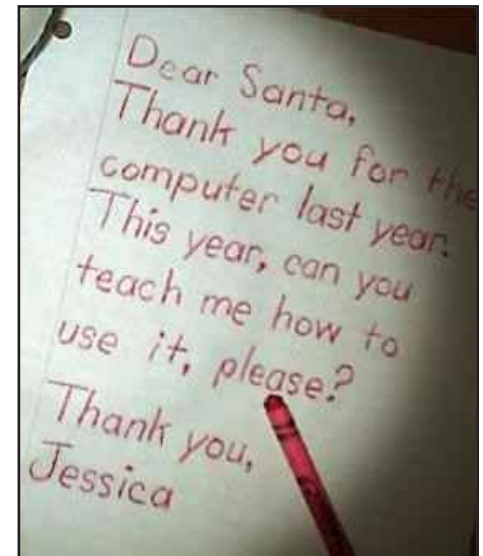 Dear Santa,
Thank you for the
computer last year.
This year, can you
teach me how to
use it, please?
Thank you,
Jessica